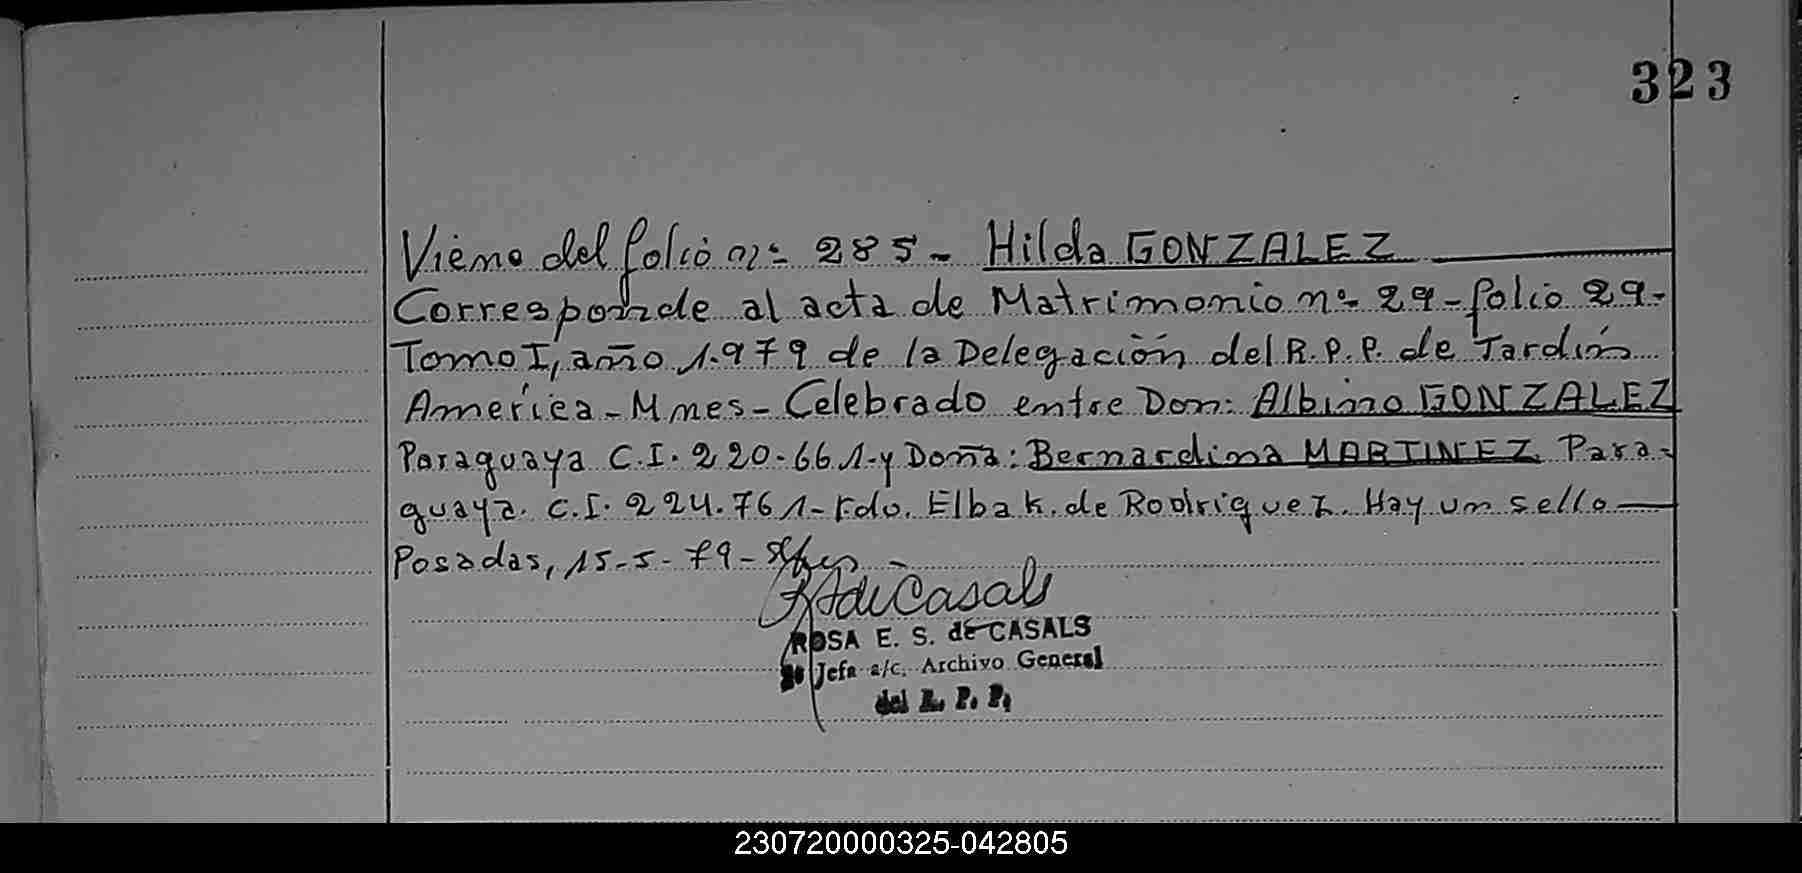 323
Viene del folio nº 285- Hilda GONZALEZ
Corresponde al acta de Matrimonio nº 29-folio 29-
Tomo I, año 1.979 de la Delegación del R.P.P. de Jardín
América-Mnes-Celebrado entre Don: Albino GONZALEZ
Paraguaya C.I. 220.661-y Doña: Bernardina MARTINEZ Para-
guaya. C.I. 224.761-Fdo. Elba K. de Rodriguez. Hay un sello
Posadas, 15-5-79-
ROSA E. S. de CASALS
Jefa a/c. Archivo General
del R. P. P.
230720000325-042805